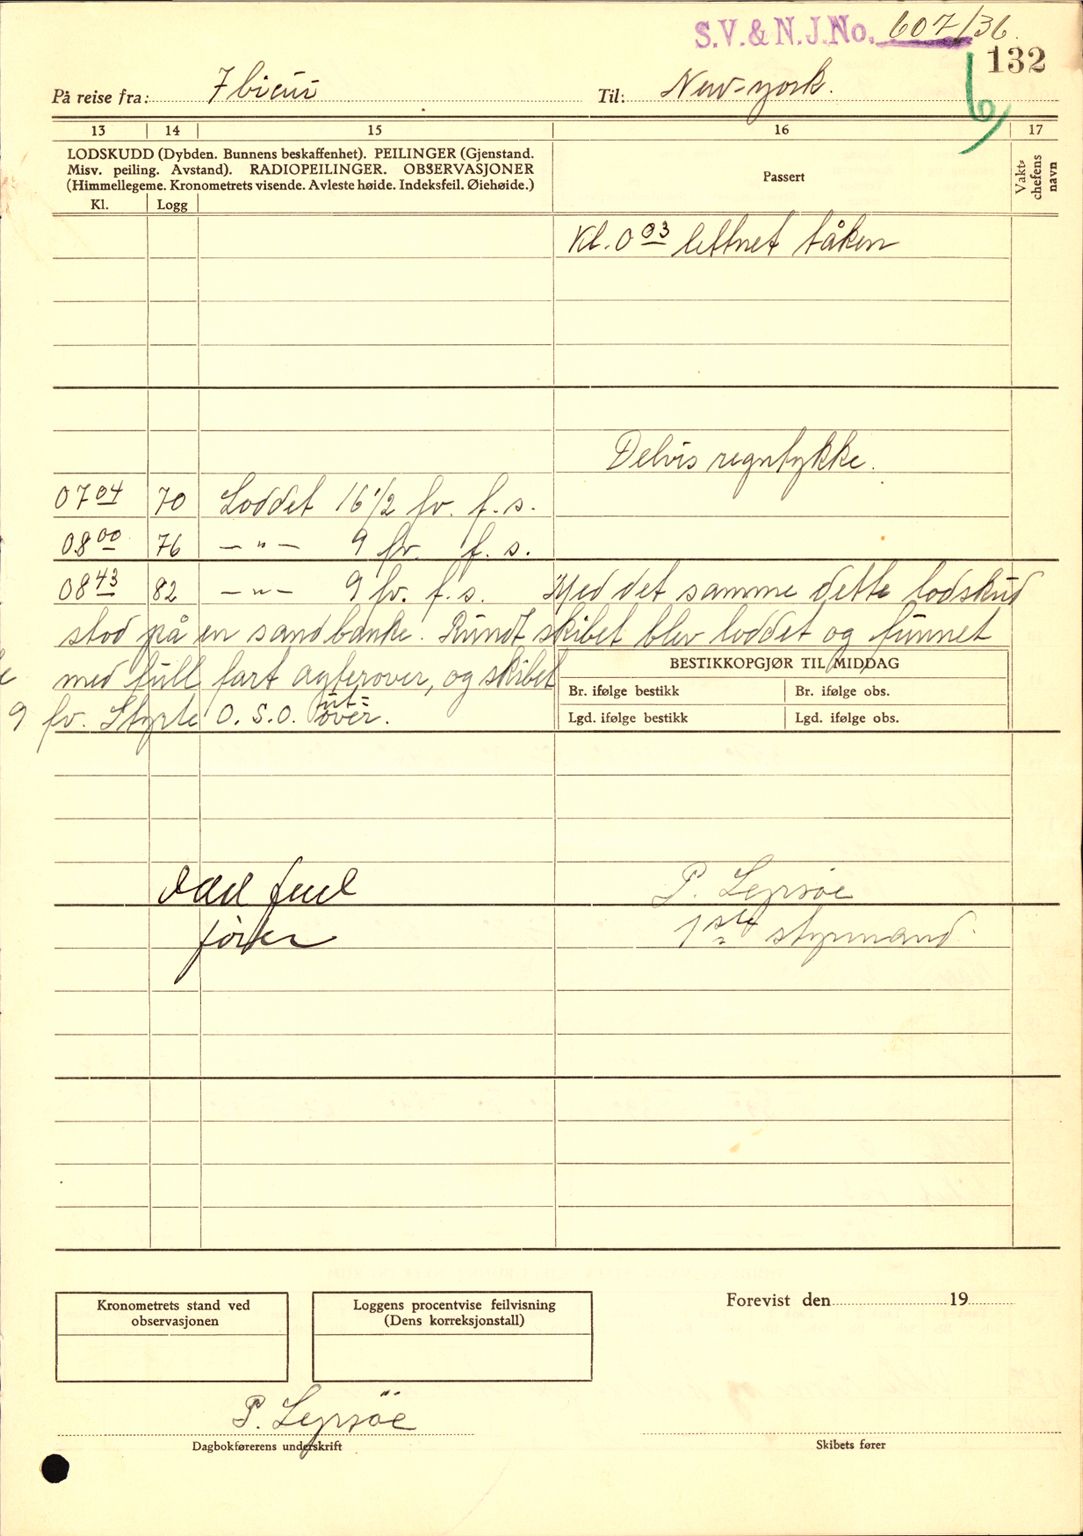 S.V. & N.J.No. 607/36.
132
På reise fra: Ibicui Til: New-york.
13 14 15 16 17
LODSKUDD (Dybden. Bunnens beskaffenhet). PEILINGER (Gjenstand.
Misv. peiling. Avstand). RADIOPEILINGER. OBSERVASJONER
(Himmellegeme. Kronometrets visende. Avleste høide. Indeksfeil. Øiehøide.)
Kl. Logg
Passert
Vakt-
chefens
navn
Kl. 0 03 lettnet tåken
Delvis regntykke.
07 04 70 Loddet 16 1/2 fv. f. s.
08 00 76 — " — 9 fv. f. s.
08 43 82 — " — 9 fv. f. s. Med det samme dette lodskud
stod på en sandbanke. Rundt skibet blev loddet og funnet
med full fart agterover, og skibet
9 fv. Styrte O. S. O. ut-
over.
BESTIKKOPGJØR TIL MIDDAG
Br. ifølge bestikk Br. ifølge obs.
Lgd. ifølge bestikk Lgd. ifølge obs.
Odd
fører
P. Leprsøe
1ste styrmand.
Kronometrets stand ved
observasjonen
Loggens procentvise feilvisning
(Dens korreksjonstall)
Forevist den 19
P. Leprsøe
Dagbokførerens underskrift
Skibets fører